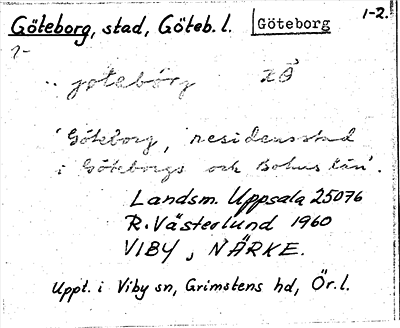 Göteborg, stad, Göteb. l. Göteborg 1-2.
1-
jotebórg
'Göteborg, residensstad
i Göteborgs och Bohus län'.
Landsm. Uppsala 25076
R. Västerlund 1960
VIBY, NÄRKE.
Uppt. i Viby sn, Grimstens hd, Ör. l.